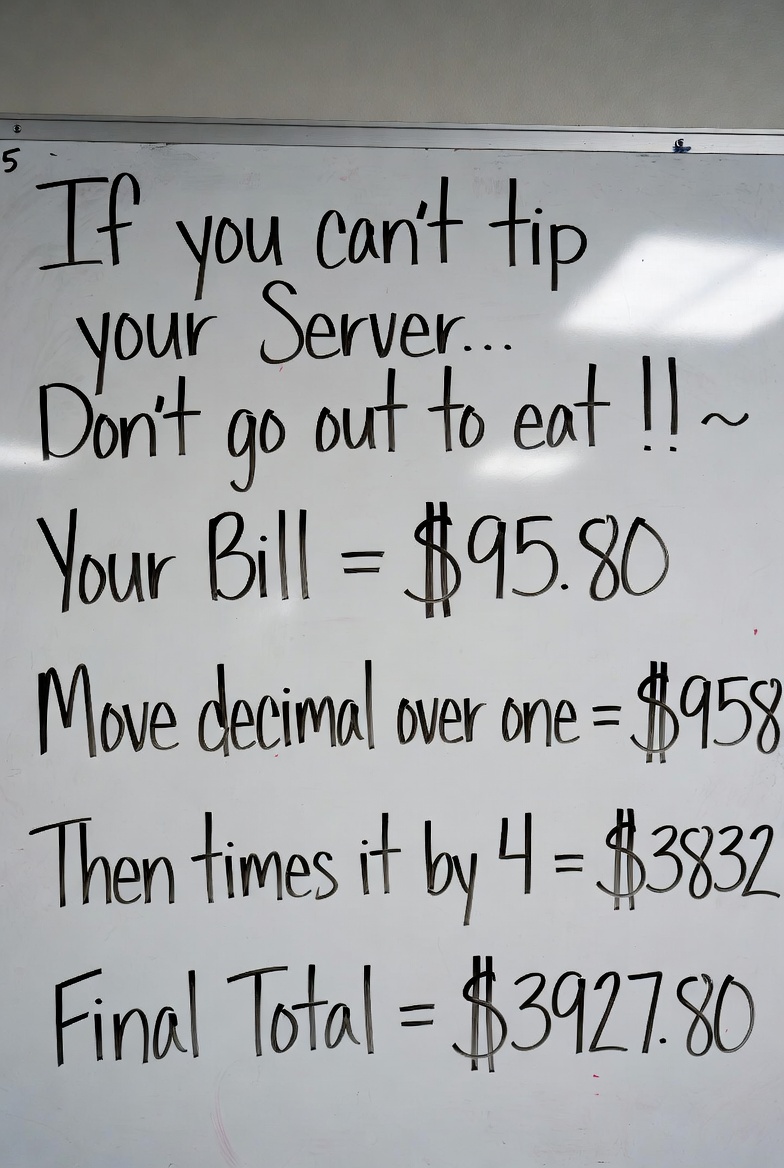 5
If you can't tip
your Server...
Don't go out to eat !! ~
Your Bill = $95.80
Move decimal over one = $958
Then times it by 4 = $3832
Final Total = $3927.80